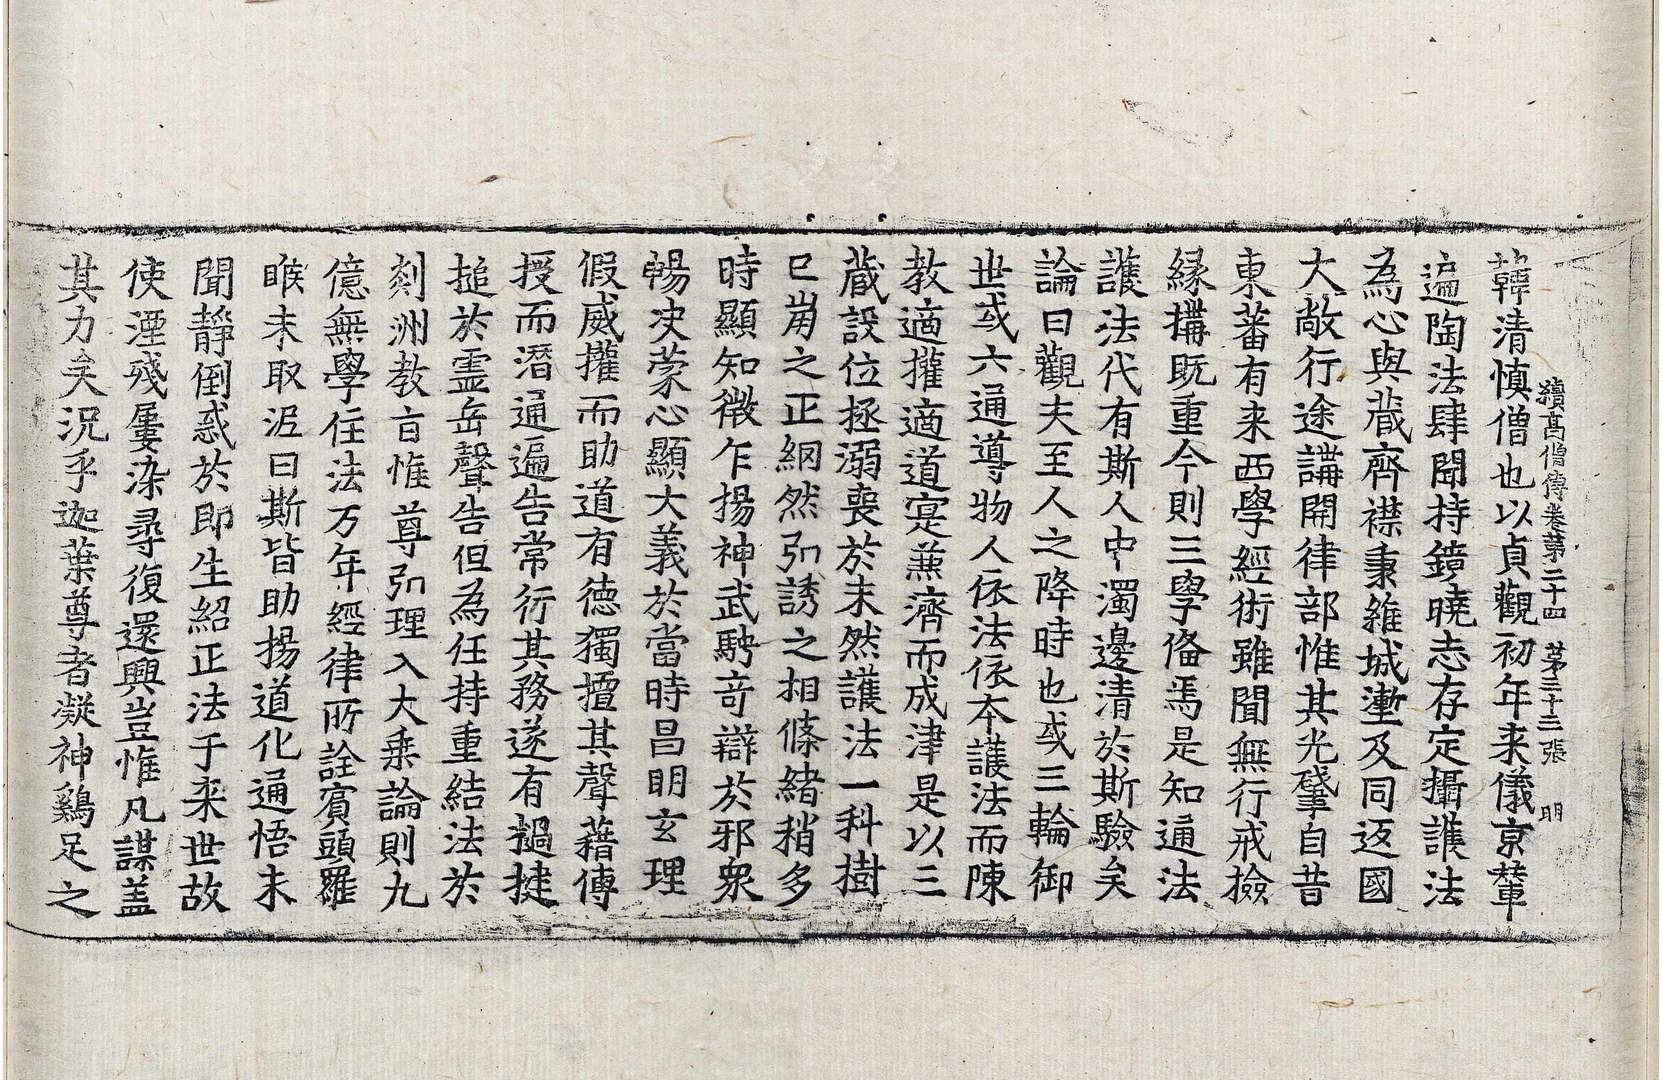 續高僧傳卷第二十四　第三十三張　明
韓清慎僧也以貞觀初年来儀京輦
遍陶法肆聞持鏡曉志存定攝護法
為心與藏齊襟秉維城壍及同返國
大敞行途講開律部惟其光肇自昔
東蕃有来西學經術雖聞無行戒撿
縁搆既重今則三學俻焉是知通法
護法代有斯人中濁邊清於斯驗矣
論曰觀夫至人之降時也或三輪御
世或六通導物人依法依本護法而陳
教適權適道寔兼濟而成津是以三
藏設位拯溺喪於未然護法一科樹
已崩之正網然引誘之相條緒稍多
時顯知微乍揚神武騁竒辯於邪衆
暢决蒙心顯大義於當時昌明玄理
假威權而助道有德獨擅其聲藉傳
授而潜通遍告常行其務遂有撾揵
搥於霊岳聲告但為任持重結法於
剡洲教旨惟尊引理入大乗論則九
億無學住法万年經律所詮賓頭羅
睺未取泥曰斯皆助揚道化通悟未
聞靜倒惑於即生紹正法于来世故
使湮殘屢染尋復還興豈惟凡謀盖
其力矣况乎迦葉尊者凝神鷄足之